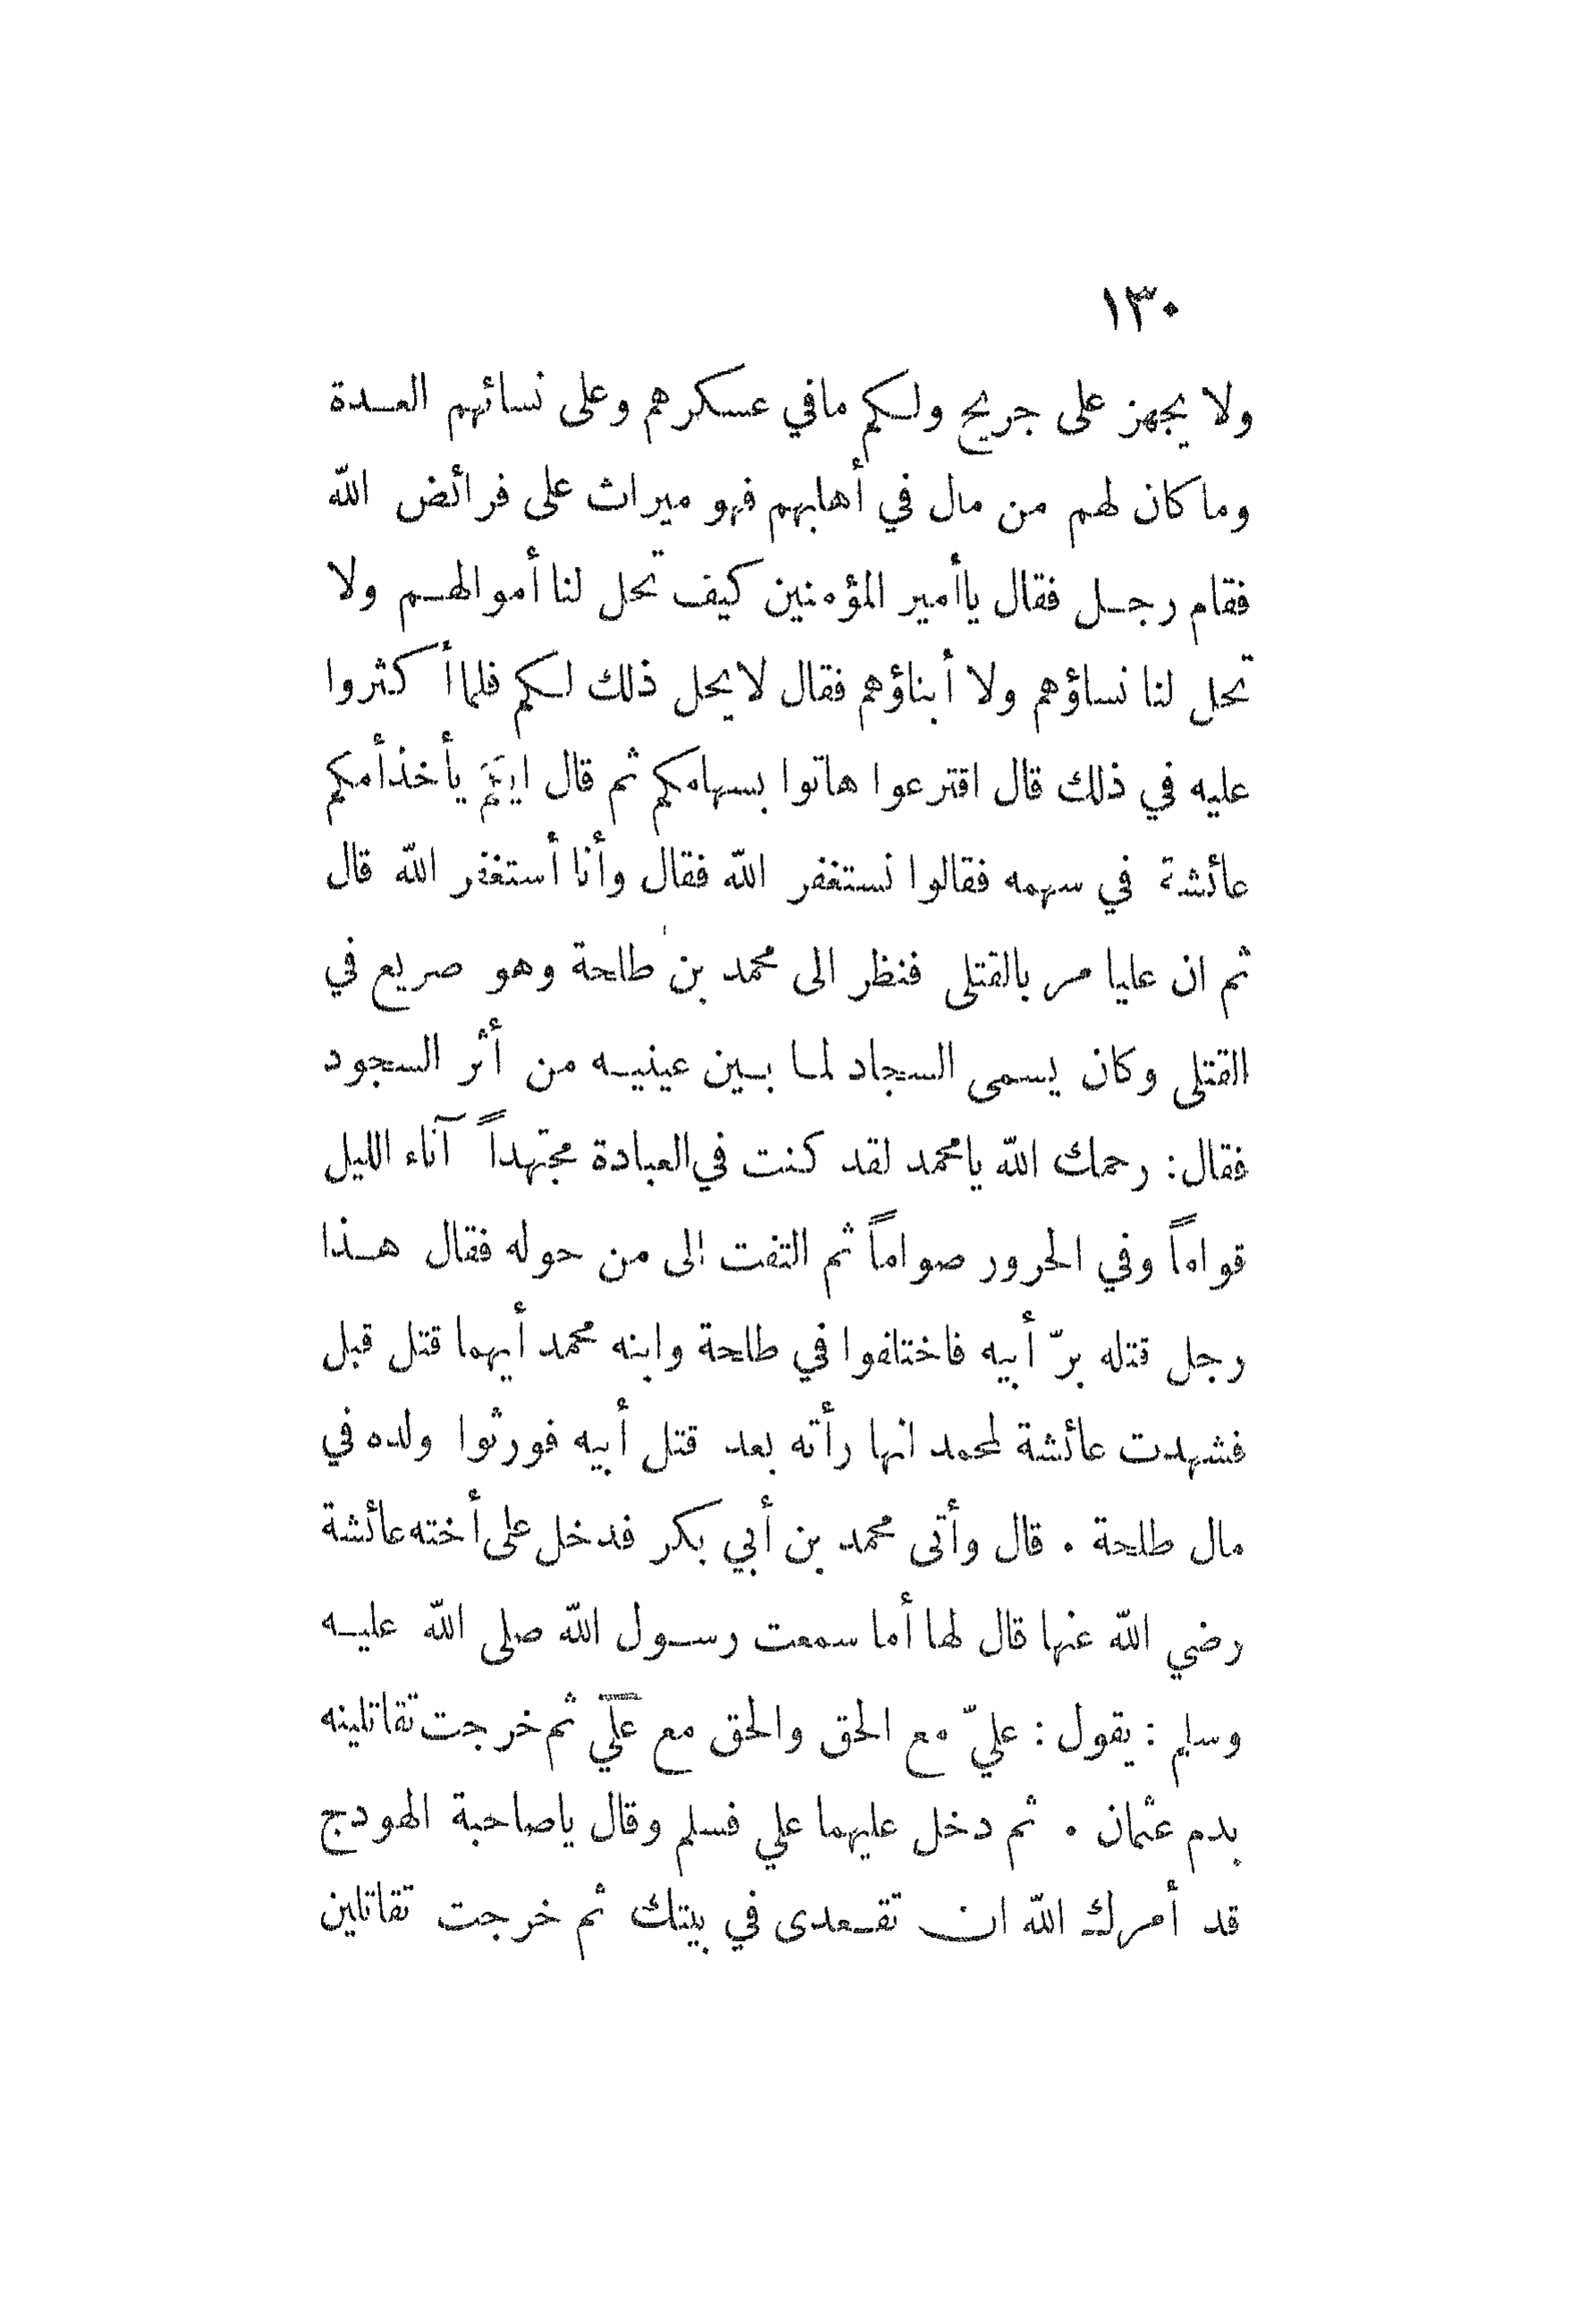 ١٣٠
ولا يجهز على جريح ولكم مافي عسكرهم وعلى نسائهم العدة
وما كان لهم من مال في أهلهم فهو ميراث على فرائض الله
فقام رجل فقال ياأمير المؤمنين كيف تحل لنا أموالهم ولا
تحل لنا نساؤهم ولا أبناؤهم فقال لا يحل ذلك لكم فلما أكثروا
عليه في ذلك قال اقترعوا هاتوا بسهامكم ثم قال ايكم يأخذ أمكم
عائشة في سهمه فقالوا نستغفر الله فقال وأنا أستغفر الله قال
ثم ان عليا مر بالقتلى فنظر الى محمد بن طلحة وهو صريع في
القتلى وكان يسمى السجاد لما بين عينيه من أثر السجود
فقال: رحمك الله يامحمد لقد كنت في العبادة مجتهداً آناء الليل
قواماً وفي الحرور صواماً ثم التفت إلى من حوله فقال هذا
رجل قتله برّ أبيه فاختلفوا في طلحة وابنه محمد أيهما قتل قبل
فشهدت عائشة لمحمد انها رأته بعد قتل أبيه فورثوا ولده في
مال طلحة . قال وأتى محمد بن أبي بكر فدخل على أخته عائشة
رضي الله عنها قال لها أما سمعت رسول الله صلى الله عليه
وسلم : يقول : عليّ مع الحق والحق مع علي ثم خرجت تقاتلينه
بدم عثمان . ثم دخل عليهما علي فسلم وقال ياصاحبة الهودج
قد أمرك الله ان تقعدى في بيتك ثم خرجت تقاتلين